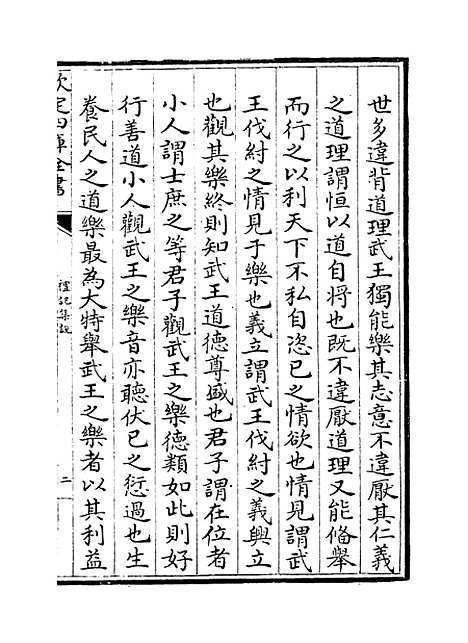 世多違背道理武王獨能樂其志意不違厭其仁義
之道理謂恒以道自將也既不違厭道理又能備舉
而行之以利天下不私自恣己之情欲也情見謂武
王伐紂之情見于樂也義立謂武王伐紂之義興立
也觀其樂終則知武王道德尊盛也君子謂在位者
小人謂士庶之等君子觀武王之樂德類如此則好
行善道小人觀武王之樂音亦聽伏己之愆過也生
養民人之道樂最為大特舉武王之樂者以其利益
欽定四庫全書
禮記集說
二